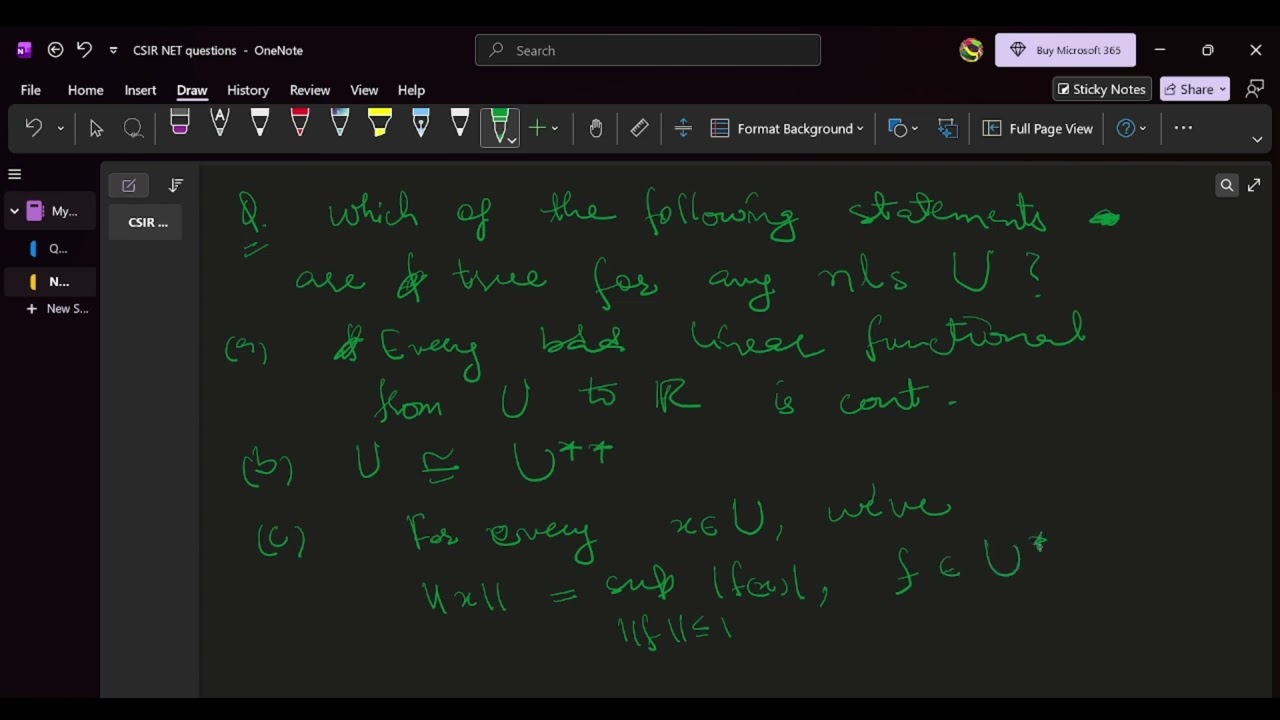 CSIR NET questions - OneNote
Search
Buy Microsoft 365
File Home Insert Draw History Review View Help
Sticky Notes
Share
Format Background
Full Page View
My...
Q...
N...
New S...
CSIR ...
Q. which of the following statements
are true for any nls U ?
(a) Every bdd linear functional
from U to ℝ is cont.
(b) U ≅ U**
(c) For every x ∈ U, we've
||x|| = sup |f(x)|, f ∈ U*
||f|| ≤ 1